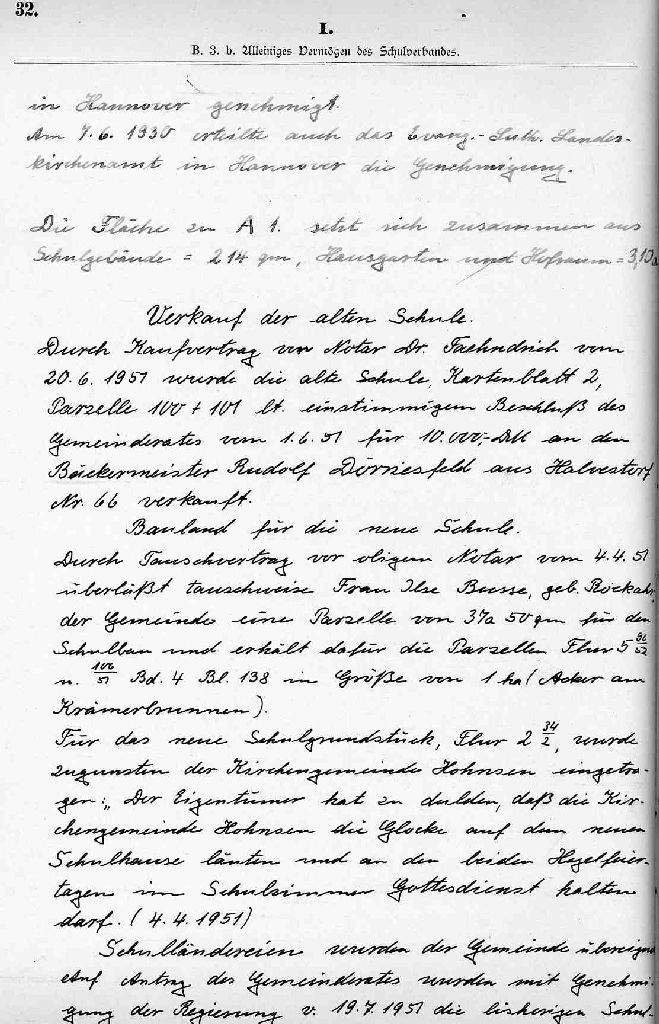 32.
I.
B. 3. b. Alleiniges Vermögen des Schulverbandes.
in Hannover genehmigt.
Am 7.6.1930 erteilte auch das Evang.-Luth. Landes-
kirchenamt in Hannover die Genehmigung.
Die Fläche zu A 1. setzt sich zusammen aus
Schulgebäude = 214 qm, Hausgarten und Hofraum = 3,10a
Verkauf der alten Schule.
Durch Kaufvertrag vor Notar Dr. Faehndrich vom
20.6.1951 wurde die alte Schule, Kartenblatt 2,
Parzelle 100 + 101 lt. einstimmigem Beschluß des
Gemeinderates vom 1.6.51 für 10.000,- DM an den
Bäckermeister Rudolf Dörriesfeld aus Halvestorf
Nr. 66 verkauft.
Bauland für die neue Schule.
Durch Tauschvertrag vor obigem Notar vom 4.4.51
überläßt tauschweise Frau Ilse Busse, geb.
der Gemeinde eine Parzelle von 37a 50qm für den
Schulbau und erhält dafür die Parzellen Flur 5
u. 106/51 Bd. 4 Bl. 138 in Größe von 1 ha (Acker am
Krämerbrunnen).
Für das neue Schulgrundstück, Flur 2 34/2, wurde
zugunsten der Kirchengemeinde Hohnsen eingetra-
gen: „Der Eigentümer hat zu dulden, daß die Kir-
chengemeinde Hohnsen die Glocke auf dem neuen
Schulhause läuten und an den beiden Hagelfeier-
tagen im Schulzimmer Gottesdienst halten
darf. (4.4.1951)
Schulländereien wurden der Gemeinde übereignet
Auf Antrag des Gemeinderates wurden mit Genehmi-
gung der Regierung v. 19.7.1951 die bisherigen Schul-